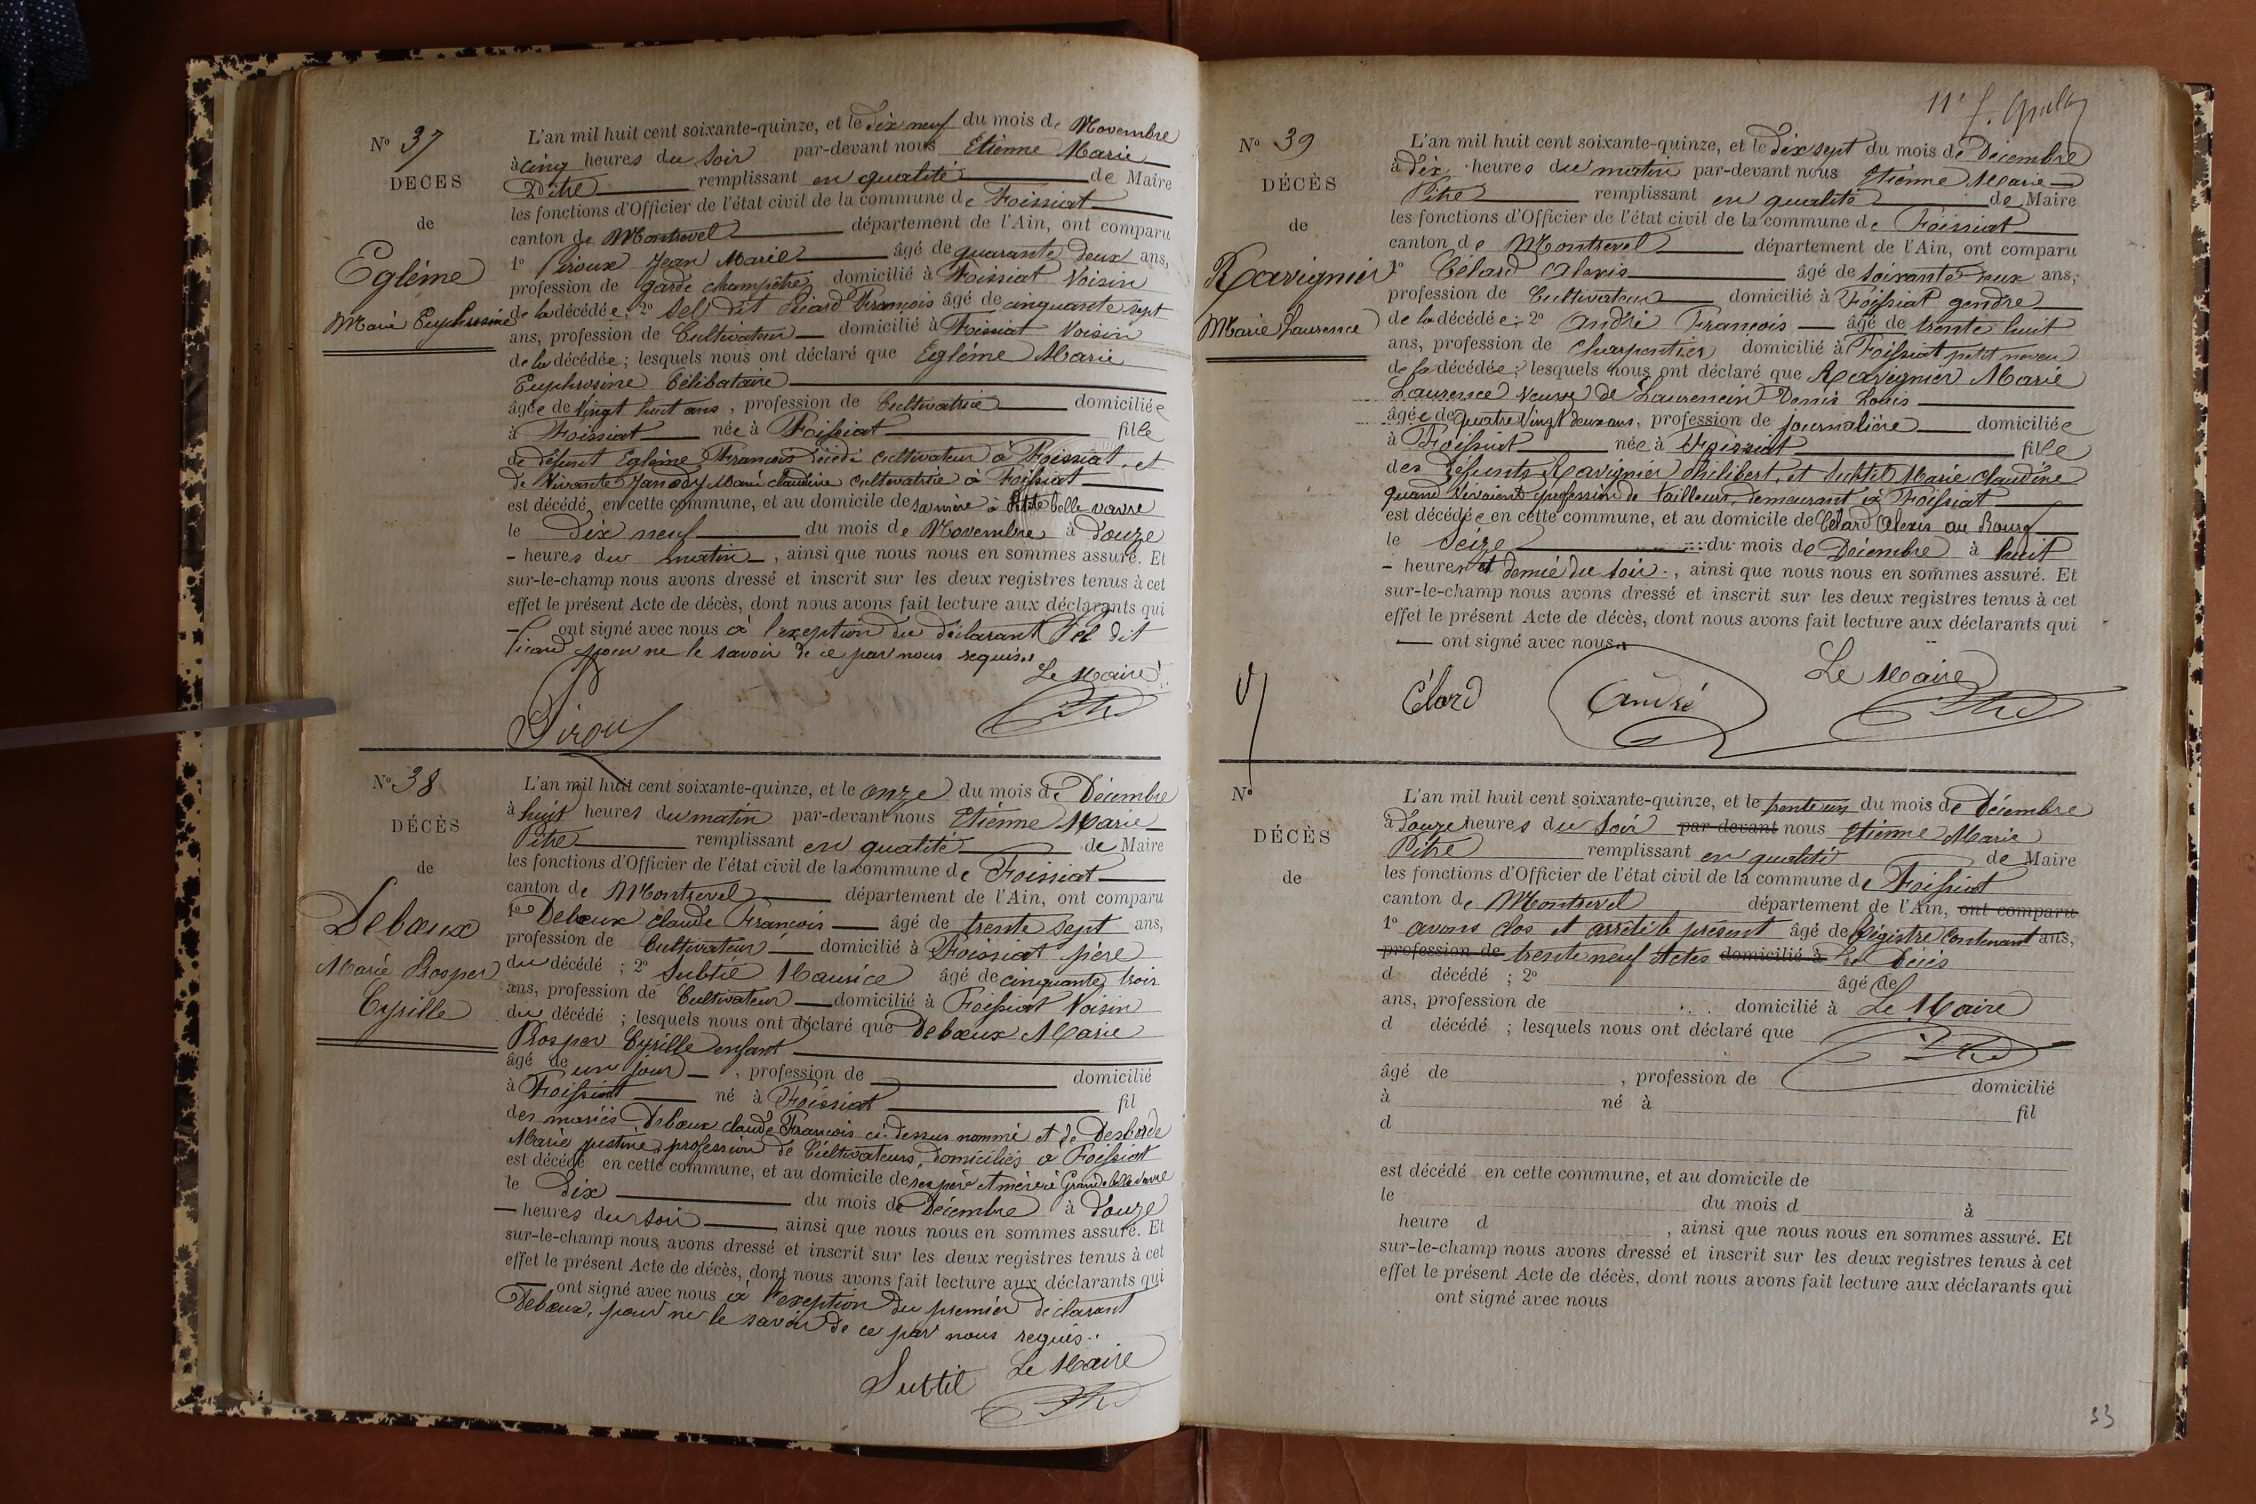 N° 37
DÉCÈS
de
Egléme
Marie Euphrosine
L'an mil huit cent soixante-quinze, et le dix neuf du mois de Novembre
à cinq heures du soir par-devant nous Etienne Marie
Pitre remplissant en qualité de Maire
les fonctions d'Officier de l'état civil de la commune de Foissiat
canton de Montrevel département de l'Ain, ont comparu
1° Piroux Jean Marie âgé de quarante deux ans,
profession de garde champêtre domicilié à Foissiat Voisin
de la décédée; 2° Sel dit Picard François âgé de cinquante sept
ans, profession de Cultivateur domicilié à Foissiat Voisin
de la décédée; lesquels nous ont déclaré que Egléme Marie
Euphrosine Célibataire
âgée de Vingt huit ans, profession de Cultivatrice domiciliée
à Foissiat née à Foissiat fille
de défunt Egléme François décédé cultivateur à Foissiat, et
de Vivante Janody Marie claudine cultivatrice à Foissiat
est décédé en cette commune, et au domicile de sa mère à Petite belle vavre
le Dix neuf du mois de Novembre à Douze
heures du matin, ainsi que nous nous en sommes assuré. Et
sur-le-champ nous avons dressé et inscrit sur les deux registres tenus à cet
effet le présent Acte de décès, dont nous avons fait lecture aux déclarants qui
ont signé avec nous à l'exeption du déclarant Sel dit
Picard pour ne le savoir de ce par nous requis.
Le Maire
Piroux
N° 38
DÉCÈS
de
Debœux
Marie Prosper
Cyrille
L'an mil huit cent soixante-quinze, et le onze du mois de Décembre
à huit heures du matin par-devant nous Etienne Marie
Pitre remplissant en qualité de Maire
les fonctions d'Officier de l'état civil de la commune de Foissiat
canton de Montrevel département de l'Ain, ont comparu
1° Debœux claude François âgé de trente sept ans,
profession de Cultivateur domicilié à Foissiat père
du décédé; 2° Subtil Maurice âgé de cinquante trois
ans, profession de Cultivateur domicilié à Foissiat Voisin
du décédé; lesquels nous ont déclaré que Debœux Marie
Prosper Cyrille enfant
âgé de un jour, profession de domicilié
à Foissiat né à Foissiat fil
des mariés Debœux claude François ci-dessus nommé et de Desborde
Marie justine profession de Cultivateurs, domiciliés à Foissiat
est décédé en cette commune, et au domicile de ses père et mère à Grande belle vavre
le Dix du mois de Décembre à Douze
heures du soir ainsi que nous nous en sommes assuré. Et
sur-le-champ nous avons dressé et inscrit sur les deux registres tenus à cet
effet le présent Acte de décès, dont nous avons fait lecture aux déclarants qui
ont signé avec nous à l'exeption du premier déclarant
Debœux, pour ne le savoir de ce par nous requis.
Le Maire
Subtil
N° 39
DÉCÈS
de
Ravignier
Marie Laurence
L'an mil huit cent soixante-quinze, et le Dix sept du mois de Décembre
à Dix heures du matin par-devant nous Etienne Marie
Pitre remplissant en qualité de Maire
les fonctions d'Officier de l'état civil de la commune de Foissiat
canton de Montrevel département de l'Ain, ont comparu
1° Célard Alexis âgé de soixante deux ans,
profession de Cultivateur domicilié à Foissiat gendre
de la décédée; 2° André François âgé de trente huit
ans, profession de Charpentier domicilié à Foissiat petit neveu
de la décédée; lesquels nous ont déclaré que Ravignier Marie
Laurence Veuve de Laurencin Denis Louis
âgée de Quatre Vingt deux ans, profession de journalière domiciliée
à Foissiat née à Foissiat fille
des défunts Ravignier Philibert, et Subtil Marie Claudine
quand Vivaient profession de tailleurs, demeurant à Foissiat
est décédée en cette commune, et au domicile de Célard Alexis au Bourg
le Seize du mois de Décembre à huit
heures et demie du soir, ainsi que nous nous en sommes assuré. Et
sur-le-champ nous avons dressé et inscrit sur les deux registres tenus à cet
effet le présent Acte de décès, dont nous avons fait lecture aux déclarants qui
ont signé avec nous.
Le Maire
Célard
André
N°
DÉCÈS
de
L'an mil huit cent soixante-quinze, et le trente un du mois de Décembre
à Douze heures du soir par-devant nous Etienne Marie
Pitre remplissant en qualité de Maire
les fonctions d'Officier de l'état civil de la commune de Foissiat
canton de Montrevel département de l'Ain, ont comparu
1° avons clos et arrêté le présent âgé de Régistre Contenant ans,
profession de trente neuf Actes domicilié à De Décès
d décédé; 2° âgé de
ans, profession de domicilié à Le Maire
d décédé; lesquels nous ont déclaré que
âgé de, profession de domicilié
à né à fil
d
est décédé en cette commune, et au domicile de
le du mois d à
heure d, ainsi que nous nous en sommes assuré. Et
sur-le-champ nous avons dressé et inscrit sur les deux registres tenus à cet
effet le présent Acte de décès, dont nous avons fait lecture aux déclarants qui
ont signé avec nous
33